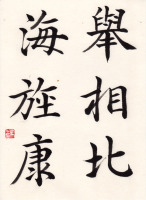 舉相比
海旌康